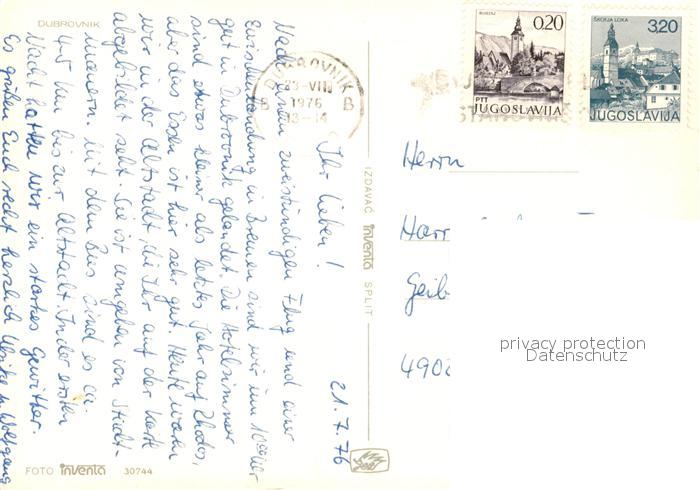 DUBROVNIK
21.7.76
Ihr Lieben!
Nach einem zweistündigen Flug und einer
Zwischenlandung in Bremen sind wir um 10 Uhr
gut in Dubrovnik gelandet. Die Hotelzimmer
sind etwas kleiner als letztes Jahr auf Rhodos,
aber das Essen ist hier sehr gut. Heute waren
wir in der Altstadt, die Ihr auf der Karte
abgebildet seht. Sie ist umgeben von Stadt-
mauern. Mit dem Bus sind es ca.
4-5 km bis zur Altstadt. In der ersten
Nacht hatten wir ein starkes Gewitter.
Es grüßen Euch recht herzlich Ulrike u. Wolfgang
FOTO inventa 30744
IZDAVAČ inventa SPLIT
DUBROVNIK
23-VII
1976
B B
13-14
0.20
PTT
JUGOSLAVIJA
ŠKOFJA LOKA
3,20
JUGOSLAVIJA
Herrn
Harr
Geib
4902
privacy protection
Datenschutz